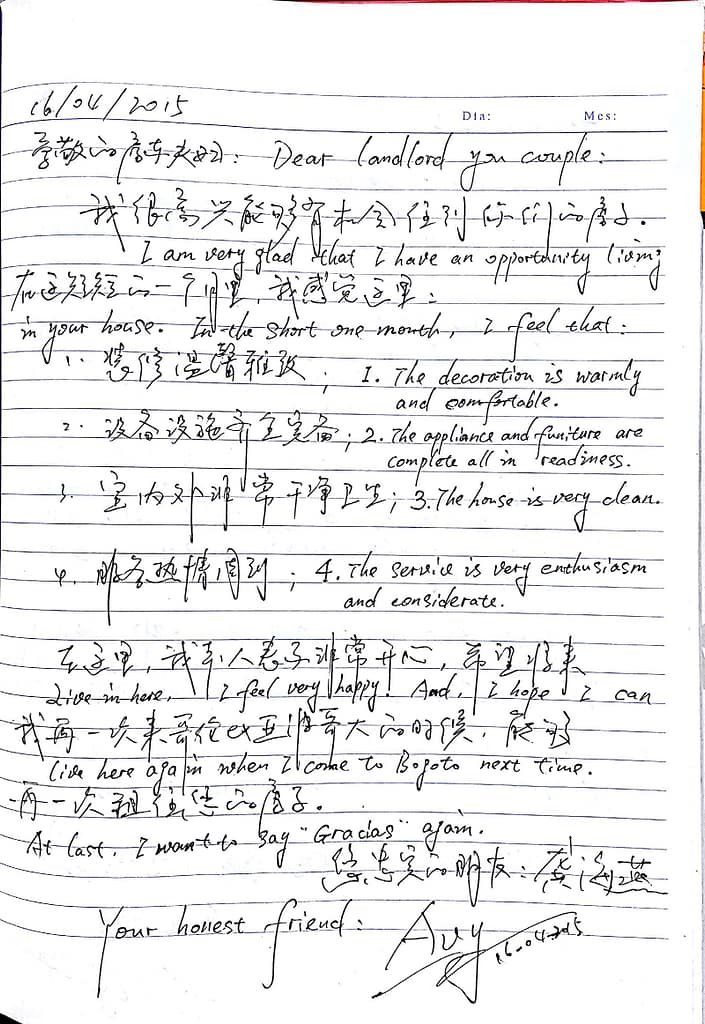 16/04/2015
Dia: Mes:
尊敬的房东夫妇: Dear landlord you couple:
我很高兴能够有机会住到你们的房子.
I am very glad that I have an opportunity living
在这短短的一个月里, 我感觉这里:
in your house. In the short one month, I feel that:
1. 装修温馨雅致; 1. The decoration is warmly
and comfortable.
2. 设备设施齐全完备; 2. The appliance and funiture are
complete all in readiness.
3. 室内外非常干净卫生; 3. The house is very clean.
4. 服务热情周到; 4. The service is very enthusiasm
and considerate.
在这里, 我本人感到非常开心, 希望将来
Live in here, I feel very happy! And, I hope I can
我再一次来哥伦比亚波哥大的时候, 能够
live here again when I come to Bogoto next time.
再一次租住您的房子.
At last, I want to say "Gracias" again.
您忠实的朋友:
Your honest friend: Avy
16-04-2015